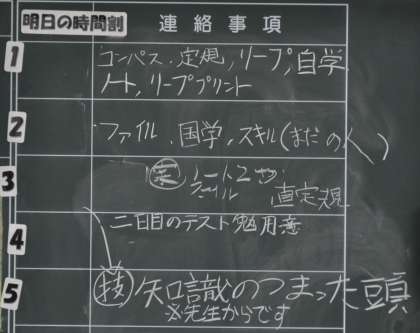 明日の時間割 連絡事項
1 コンパス、定規、リープ、自学
ノート、リーププリント
2 ファイル、国学、スキル(まだの人)
3 ノート2サツ
ファイル 直定規
4 二日目のテスト勉用意
5 技 知識のつまった頭
※先生からです